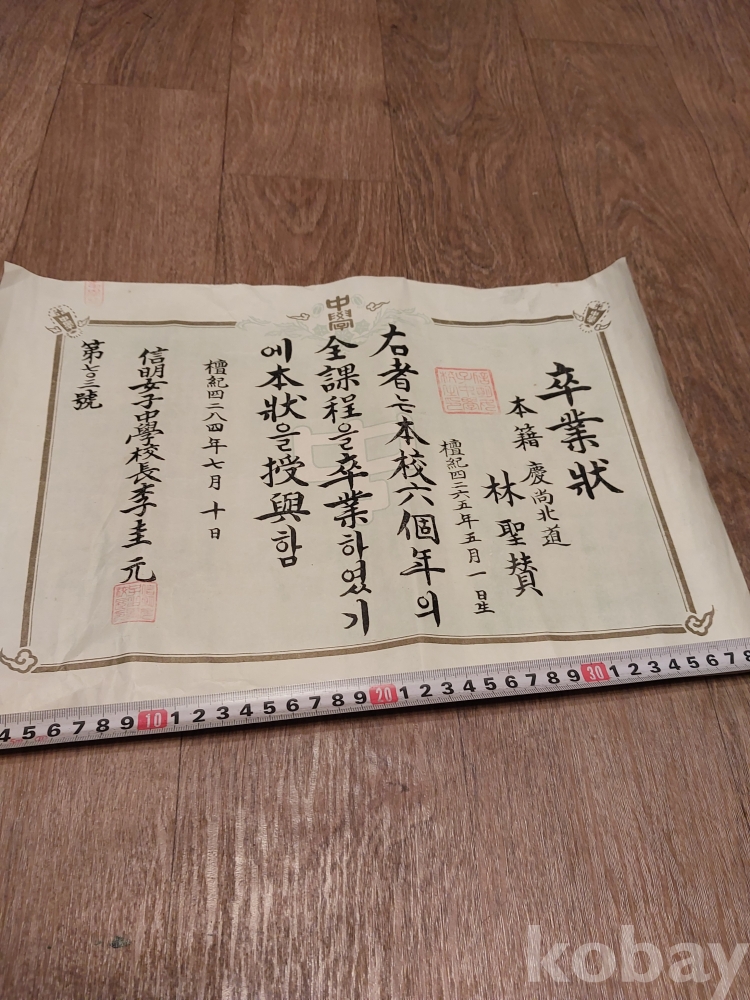 中學
卒業狀
本籍 慶尚北道
林聖賛
檀紀四二六五年五月一日生
右者는本校六個年의
全課程을卒業하였기
에本狀을授與함
檀紀四二八四年七月十日
信明女子中學校長李圭元
第七〇三號
4 5 6 7 8 9 10 1 2 3 4 5 6 7 8 9 20 1 2 3 4 5 6 7 8 9 30 1 2 3 4 5 6 7 8
kobay